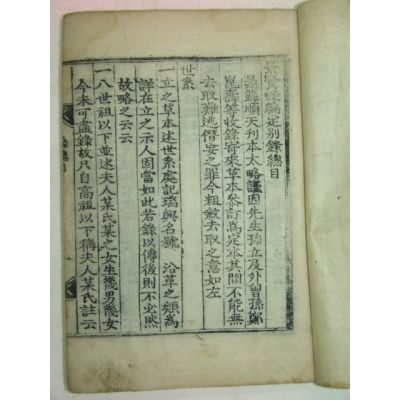 景賢錄編定別錄總目
是錄順天利本太略謹因先生孫立及外曾孫鄭
崑壽等收錄寄來草本參訂爲定本其間不能無
去取難逃僭妄之罪今粗敘去取之意如左
世系
一立之草本述世系處記瑞興名號沿革之類爲
詳在立之示人固當如此若錄以傳後則不必然
故略之云云
一八世祖以下並述夫人某氏某之女生幾男幾女
今未可盡錄故只自高祖以下稱夫人某氏註云